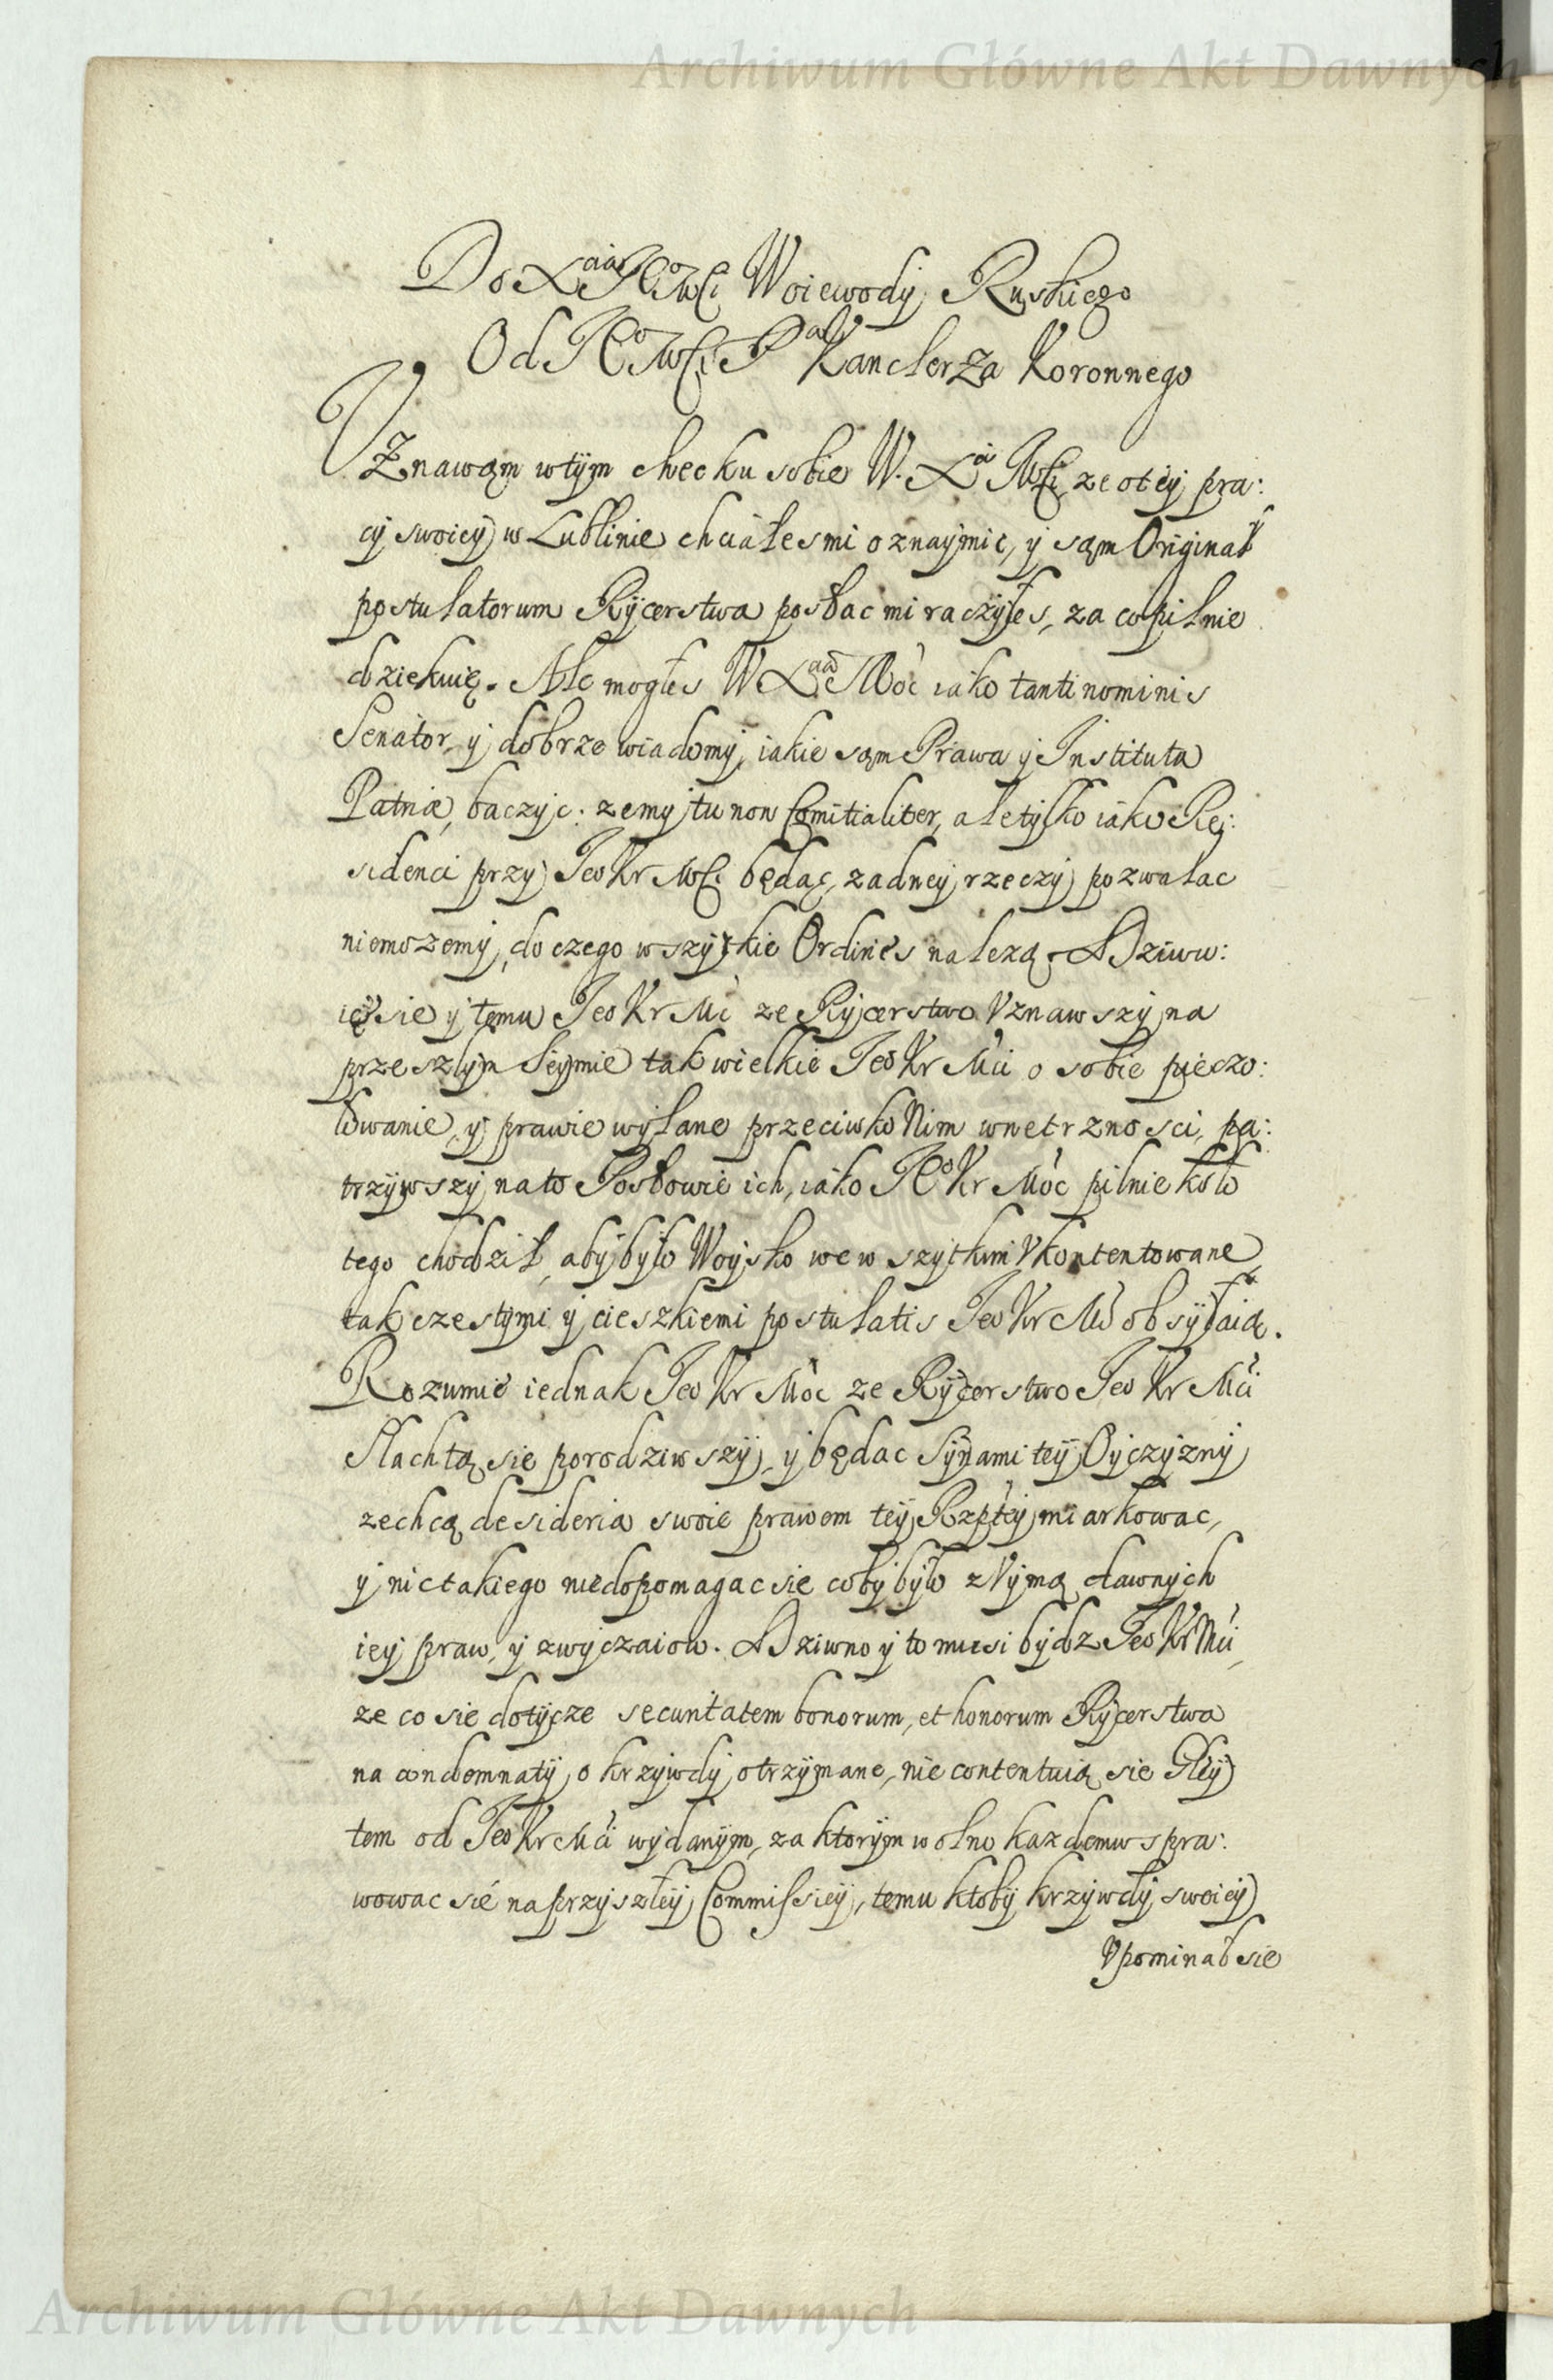 Archiwum Główne Akt Dawnych
Do Xaia Jeo Mci Woiewody Ruskiego
Od Jeo Mci P Kanclerza Koronnego
Vznawam w tym checku sobie W. Xa Mci, ze o tey pra:
cy swoiey w Lublinie chciałes mi oznaymic, y sam Originał
postulatorum Rycerstwa posłac mi raczyłes, za co pilnie
dziekuię. Ale mogłes W Xaa Moc iako tanti nominis
Senator, y dobrze wiadomy, iakie sąm Prawa y Instituta
Patriæ, baczyc: ze my tu non Comitialiter, ale tylko iako Re:
sidenci przy Jeo Kr Mci będąc, zadney rzeczy pozwalac
niemozemy, do czego wszytkie Ordines nalezą. A Dziwu:
ię sie y temu Jeo Kr Mc ze Rycerstwo Vznawszy na
przeszłym Seymie tak wielkie Jeo Kr Mci o sobie pieczo:
łowanie, y prawie wylane przeciwko Nim wnetrznosci, pa:
trzywszy na to Posłowie ich, iako Jeo Kr Moc pilnie koło
tego chodził, aby było Woysko we wszytkim Vkontentowane,
tak czestymi y cieszkiemi postulatis Jeo Kr Mc obsyłaią.
Rozumie iednak Jeo Kr Moc ze Rycerstwo Jeo Kr Mci
Slachtą sie porodziwszy, y będac Synami tey Oyczyzny
zechcą desideria swoie prawem tey Rzptey miarkowac,
y nic takiego niedopomagac sie coby było z Vymą dawnych
iey praw, y zwyczaiow. A Dziwno y to musi bydz Jeo Kr Mci,
ze co sie dotycze securitatem bonorum, et honorum Rycerstwa
na condemnaty o krzywdy otrzymane, nie contentuią sie Gley
tem od Jeo Kr Mci wydanym, za ktorym wolno kazdemu spra:
wowac sie na przyszłey Commissiey, temu ktoby krzywdy swoiey
Vpominał sie
Archiwum Główne Akt Dawnych